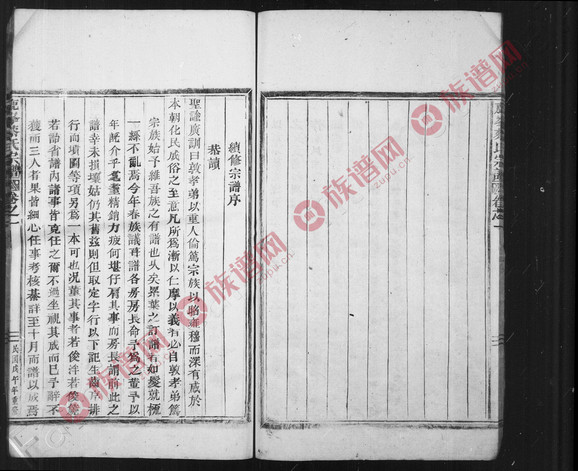 續修宗譜序
恭讀
聖諭廣訓曰敦孝弟以重人倫篤宗族以昭雍穆而深有感於
本朝化民成俗之至意凡所為漸以仁摩以義者必自敦孝弟篤
宗族始予維吾族之有譜也久矣累葉之訂譜者如
一絲不亂焉今年春族議再譜各房房長命予為之董予以
年既介乎耄耋精銷力疲何堪仔肩其事而房長謂前此之
譜幸未損壞姑仍其舊茲則但取定字行以下記生齒序排
行而墳圖等項另為一本可也況董其事者若俊
若 若譜內諸事皆克任之爾不過坐視其成而已予辭不
獲而三人者果皆細心任事考核綦詳至十月而譜以成焉
氏宗譜
卷之一
民國戊午年重
族谱网
zupu.cn
族谱网
zupu.cn